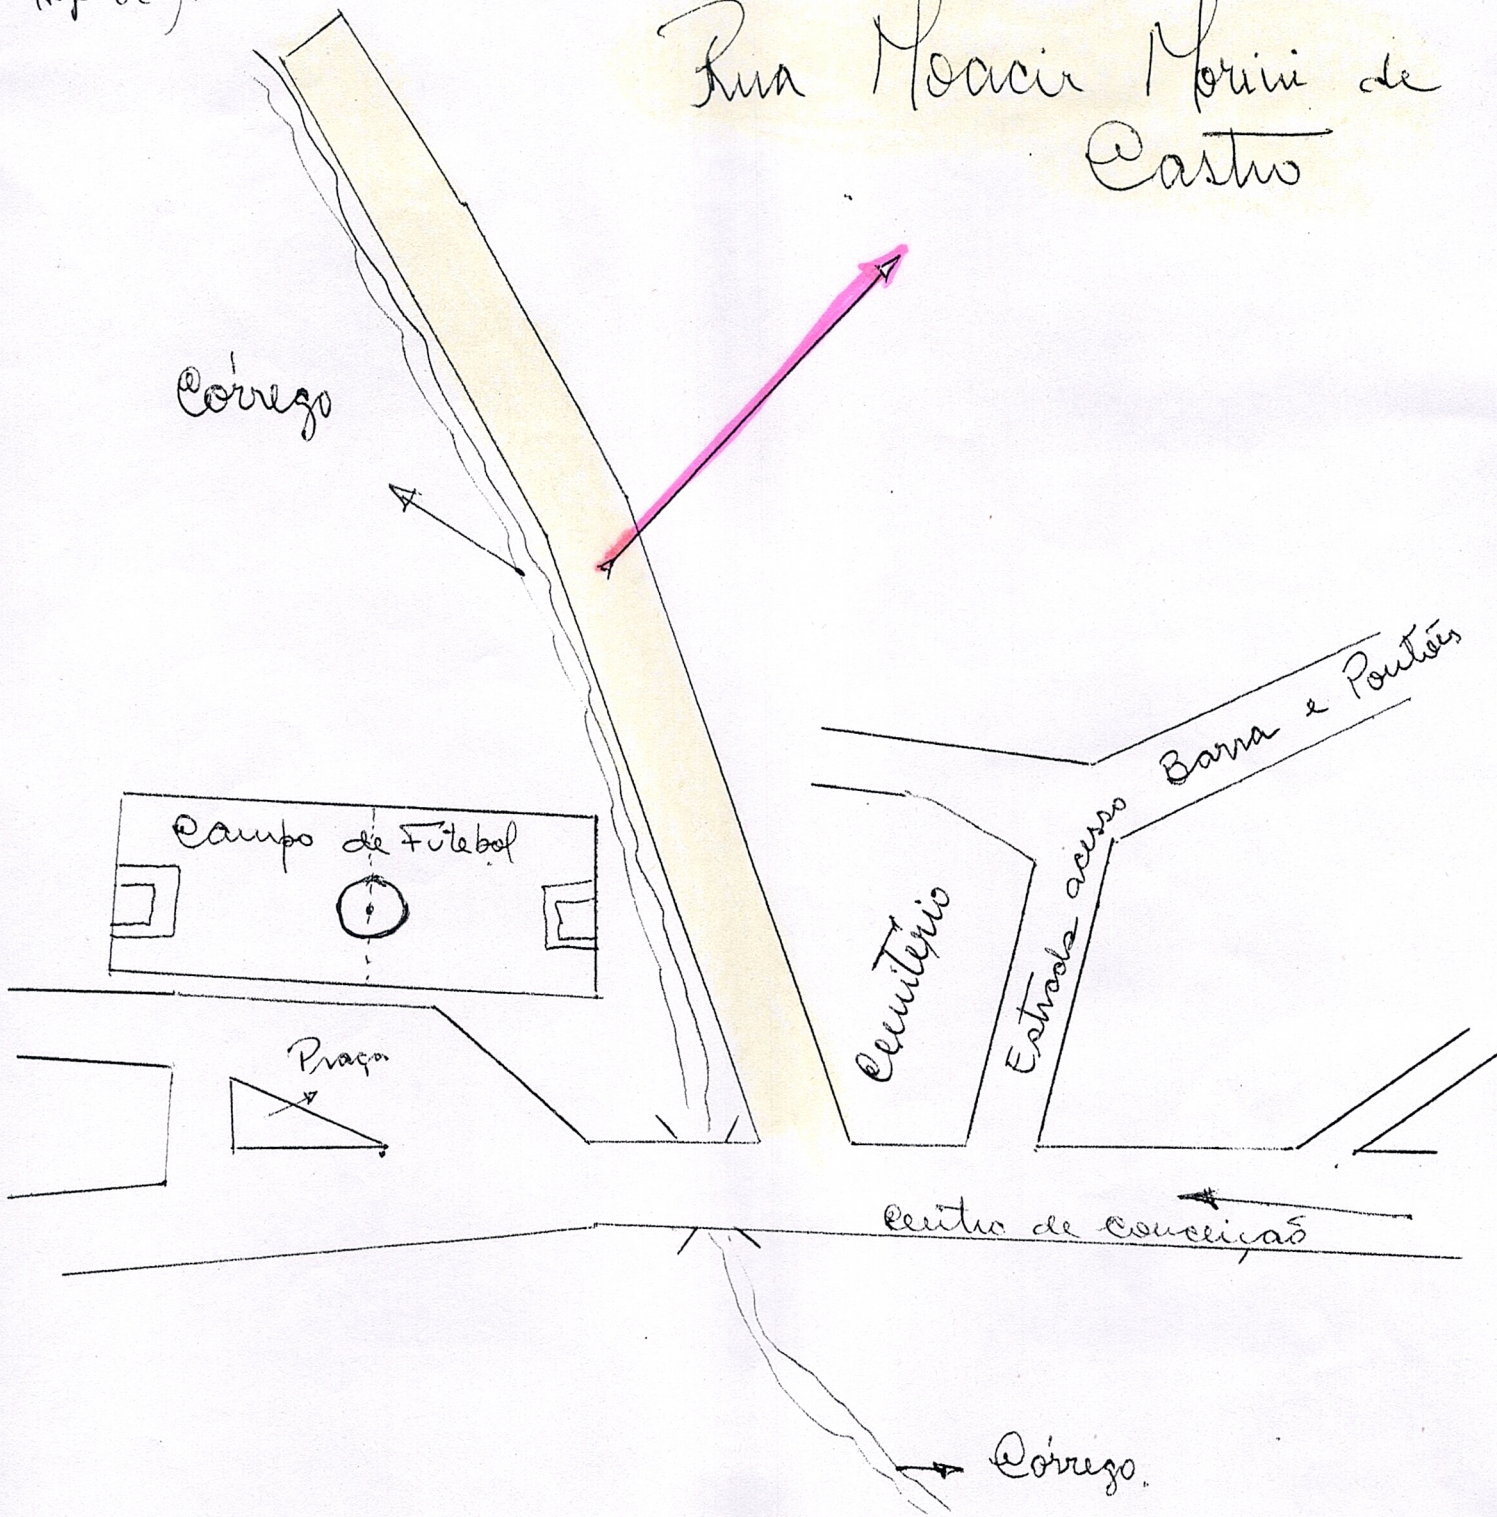 Rua Moacir Morini de
Castro
Córrego
Campo de Futebol
Praça
Cemitério
Estrada acesso
Barra e Pontões
Centro de Conceição
Córrego.